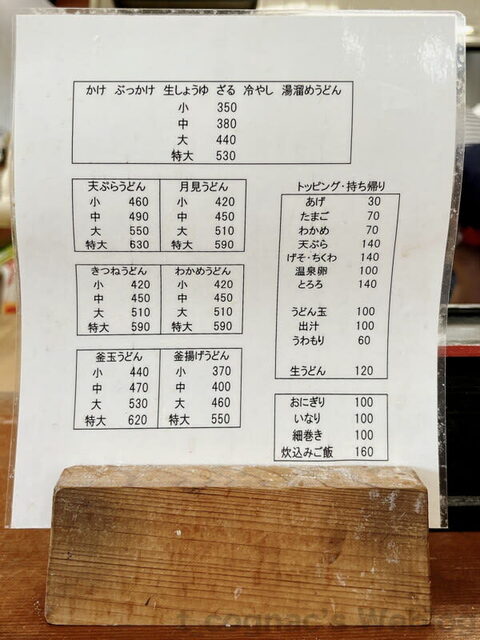 かけ ぶっかけ 生しょうゆ ざる 冷やし 湯溜めうどん
小 350
中 380
大 440
特大 530
天ぷらうどん
小 460
中 490
大 550
特大 630
月見うどん
小 420
中 450
大 510
特大 590
きつねうどん
小 420
中 450
大 510
特大 590
わかめうどん
小 420
中 450
大 510
特大 590
釜玉うどん
小 440
中 470
大 530
特大 620
釜揚げうどん
小 370
中 400
大 460
特大 550
トッピング・持ち帰り
あげ 30
たまご 70
わかめ 70
天ぷら 140
げそ・ちくわ 140
温泉卵 100
とろろ 140
うどん玉 100
出汁 100
うわもり 60
生うどん 120
おにぎり 100
いなり 100
細巻き 100
炊込みご飯 160